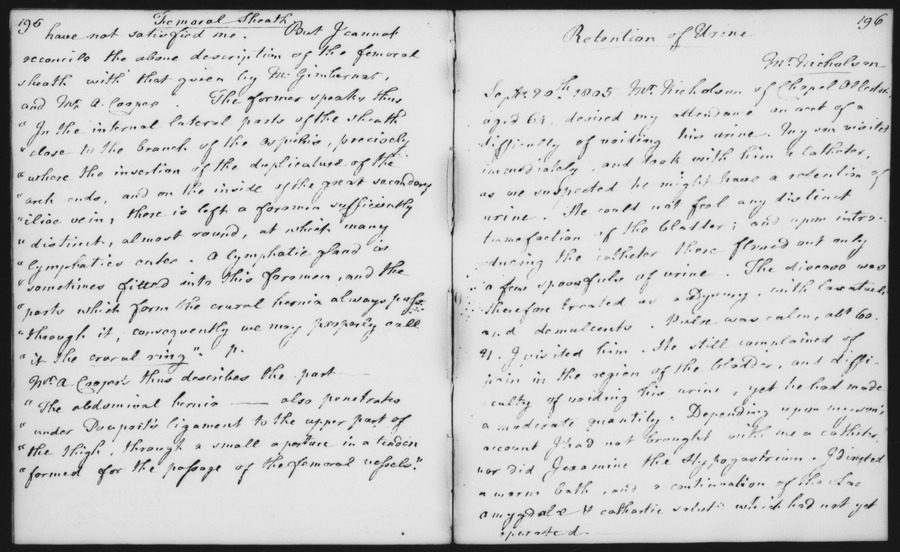 196
Femoral Sheath
have not satisfied me. But I cannot
reconcile the above description of the femoral
sheath with that given by Mr. Gimbernat,
and Mr. A. Cooper. The former speaks thus
" In the internal lateral parts of the sheath
" close to the branch of the precisely
" where the insertion of the duplicature of the
" arch ends, and on the inside of the great secondary
" iliac vein; there is left a foramen sufficiently
" distinct, almost round, at which many
" lymphatics enter. A lymphatic gland is
" sometimes fitted into this foramen, and the
" parts which form the crural hernia always pass
" through it, consequently we may properly call
" it the crural ring". p.
Mr. A Cooper thus describes the part —
" The abdominal hernia — also penetrates
" under Poupart's ligament to the upper part of
" the thigh, through a small aperture in a tendon
" formed for the passage of the femoral vessels."
196
Retention of Urine
Mr. Nicholson
Sept. 20th 1805 Mr. Nicholson of Chapel
aged 61, desired my attendance on acct of a
difficulty of voiding his urine. My son visited
immediately, and took with him a catheter,
as we suspected he might have a retention of
urine. He could not feel any distinct
tumefaction of the bladder; and upon intro-
ducing the catheter there flowed out only
a few spoonfuls of urine. The disease was
therefore treated as a Dysury, with laxatives
and demulcents. Pulse was calm, abt 60.
21. I visited him. He still complained of
pain in the region of the bladder, and diffi-
culty of voiding his urine, yet he had made
a moderate quantity. Depending upon my son's
account I had not brought with me a catheter,
nor did I examine the Hypogastrium. I directed
a warm bath, and a continuation of the Lac
amygdalæ & cathartic which had not yet
operated.